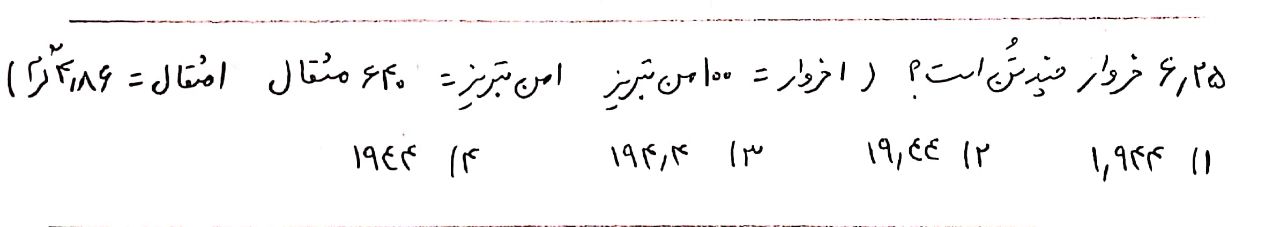 ۶٫۲۵ خروار چند تُن است؟ (۱خروار = ۱۰۰من تبریز ۱من تبریز = ۶۴۰ مثقال ۱مثقال = ۴٫۸۶ گرم)
۱) ۱٫۹۴۴ ۲) ۱۹٫۴۴ ۳) ۱۹۴٫۴ ۴) ۱۹۴۴